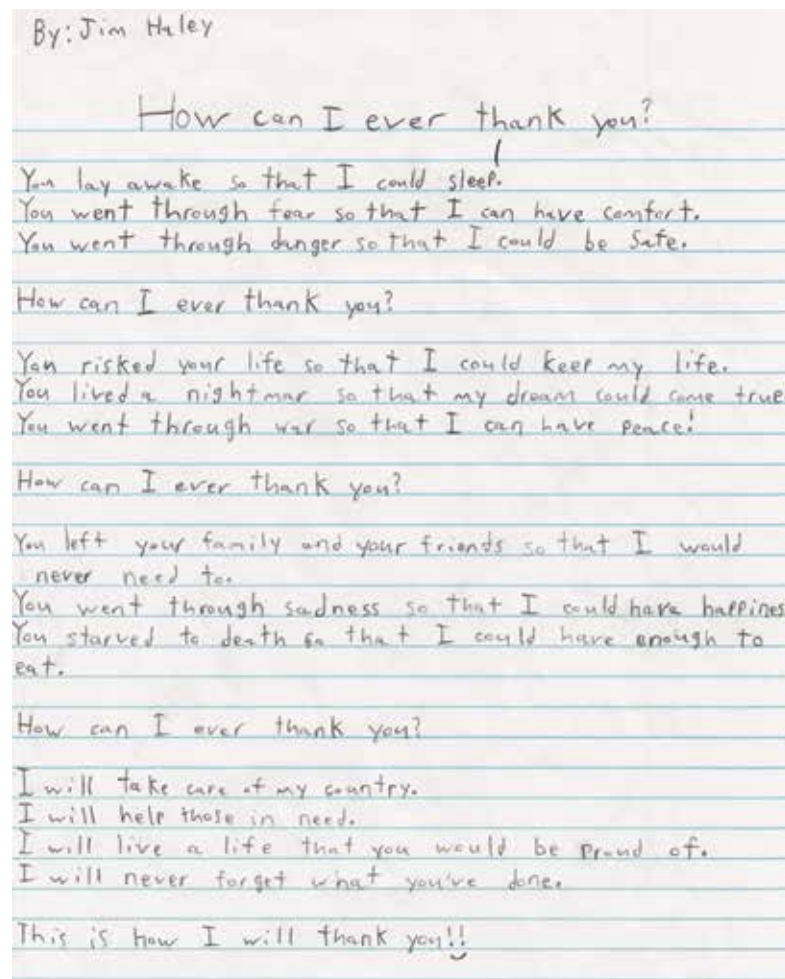 By: Jim Haley
How can I ever thank you?
You lay awake so that I could sleep.
You went through fear so that I can have comfort.
You went through danger so that I could be safe.
How can I ever thank you?
You risked your life so that I could keep my life.
You lived a nightmar so that my dream could come true
You went through war so that I can have peace!
How can I ever thank you?
You left your family and your friends so that I would
never need to.
You went through sadness so that I could have happines
You starved to death so that I could have enough to
eat.
How can I ever thank you?
I will take care of my country.
I will help those in need.
I will live a life that you would be proud of.
I will never forget what you've done.
This is how I will thank you!!